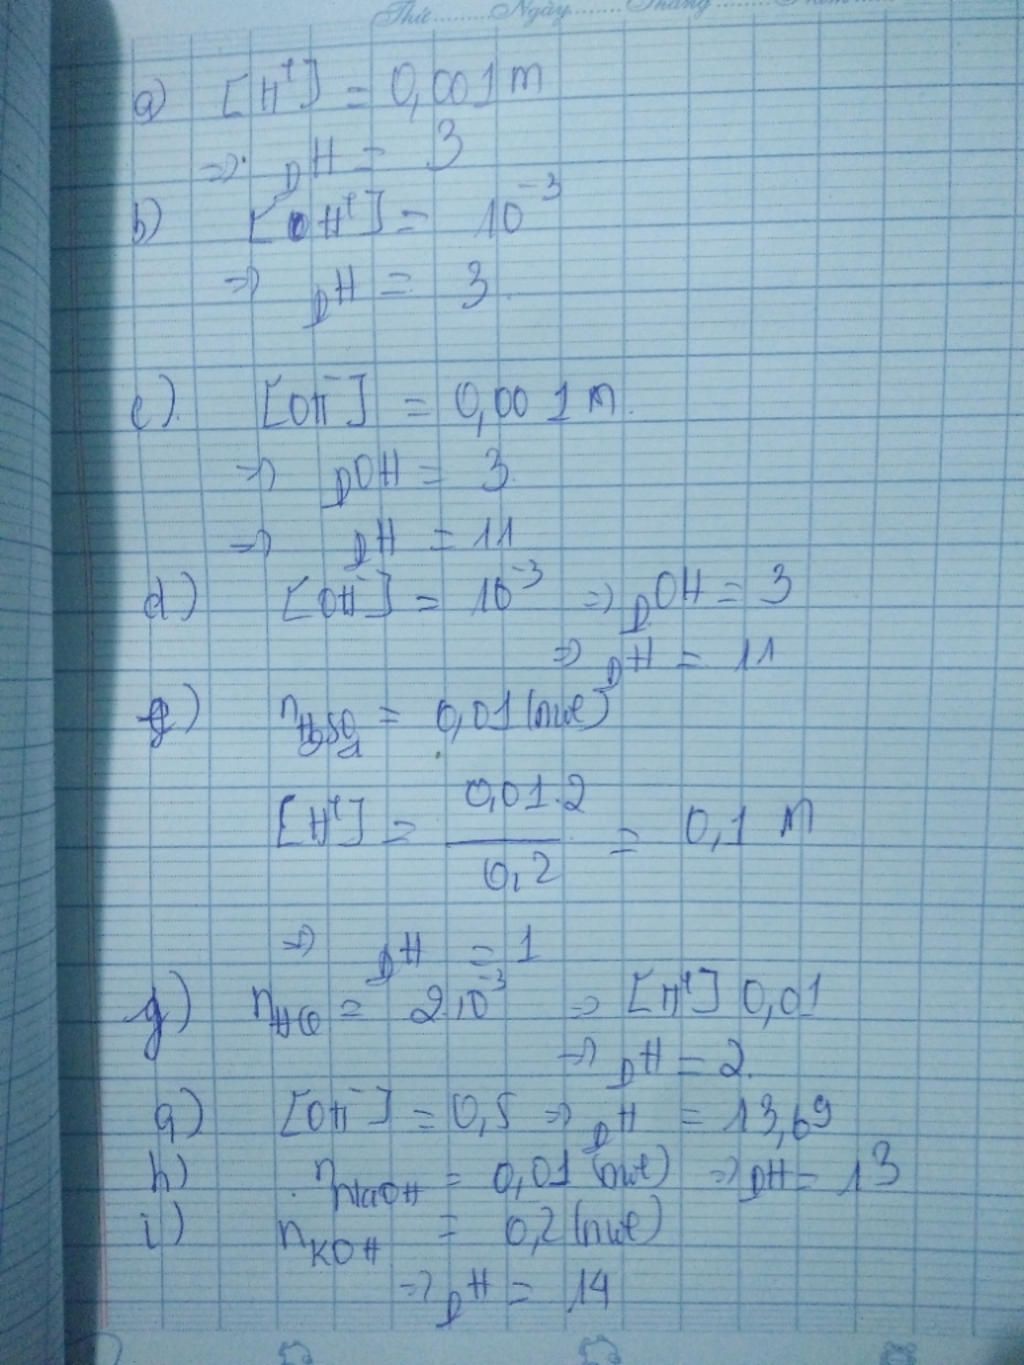 Thứ.........Ngày........Tháng.........
a) [H⁺] = 0,001 M
=> pH = 3
b) [OH⁺] = 10⁻³
=> pH = 3
c). [OH⁻] = 0,001 M.
=> pOH = 3
=> pH = 11
d) [OH⁻] = 10⁻³ => pOH = 3
=> pH = 11
e) nH₂SO₄ = 0,01 (mol)
[H⁺] = 0,01.2 / 0,2 = 0,1 M
=> pH = 1
g) nHCl = 2.10⁻³ => [H⁺] 0,01
=> pH = 2.
g) [OH⁻] = 0,5 => pH = 13,69
h) nNaOH = 0,01 (mol) => pH = 13
i) nKOH = 0,2 (mol)
=> pH = 14